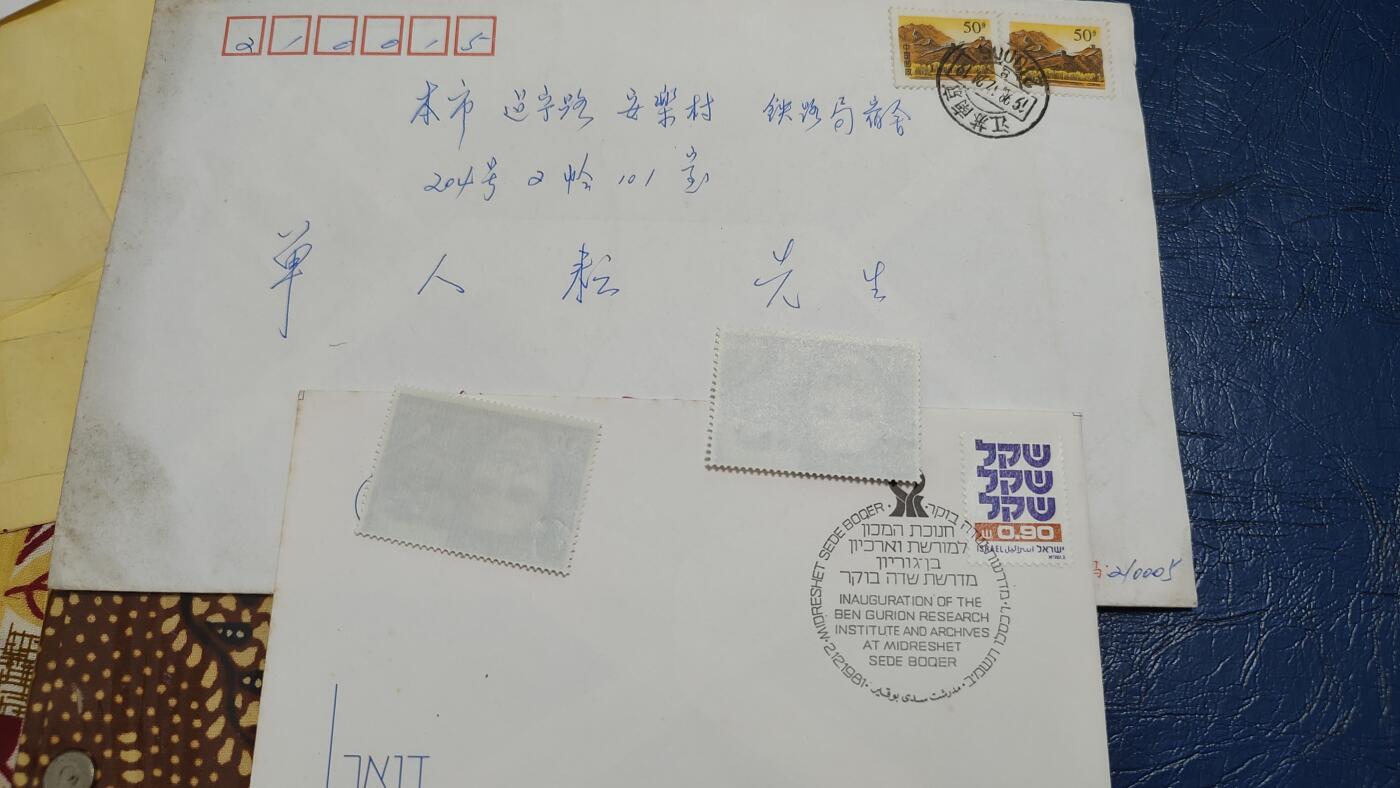 210015
50分
50分
江苏南京
本市 迈宇路 安樂村 铁路局宿舍
204号 2幢 101室
单人耘先生
210005
שקל
שקל
שקל
0.90
ISRAEL اسرائيل ישראל
חנוכת המכון
למורשת וארכיון
בן-גוריון
מדרשת שדה בוקר
INAUGURATION OF THE
BEN GURION RESEARCH
INSTITUTE AND ARCHIVES
AT MIDRESHET
SEDE BOQER
MIDRESHET SEDE BOQER
2.12.1981
مدرشت سدي بوقير
דואר